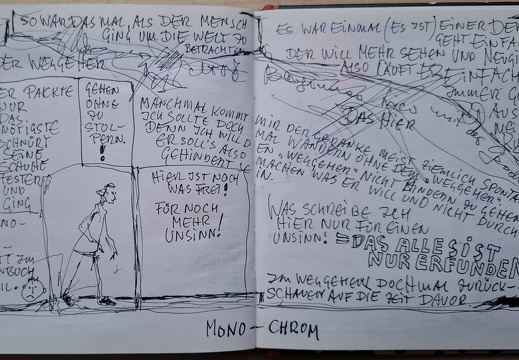 SO WAR DAS MAL, ALS DER MENSCH
GING UM DIE WELT ZU
BETRACHTEN
DER WEGEHER
ER PACKTE
NUR
DAS
NÖTIGSTE
SCHNÜRT
SEINE
SCHUHE
FESTER
UND
GING
GEHEN
OHNE
ZU
STOL-
PERN.
!
MANCHMAL KOMMT
ICH SOLLTE DOCH
DENN ICH WILL
ER SOLL'S ALSO
GEHINDERT
HIER IST NOCH
WAS FREI!
FÜR NOCH
MEHR
UNSINN!
ES WAR EINMAL (ES IST) EINER DER
GEHT EINFA
DER WILL MEHR SEHEN UND NEUGI
ALSO LÄUFT ER EINFACH
IMMER
AUS
DAS HIER
MIR DER GEDANKE, MEIST ZIEMLICH SPONTA
MAL WANDERN OHNE DEM "WEGGEHEN"
EN "WEGGEHEN". NICHT HINDERN ZU GEHEN
MACHEN WAS ER WILL UND NICHT DURCH
IN.
WAS SCHREIBE ICH
HIER NUR FÜR EINEN
UNSINN! = DAS ALLES IST
NUR ERFUNDEN
IM WEGGEHEN DOCH MAL ZURÜCK-
SCHAUEN AUF DIE ZEIT DAVOR
MONO-CHROM